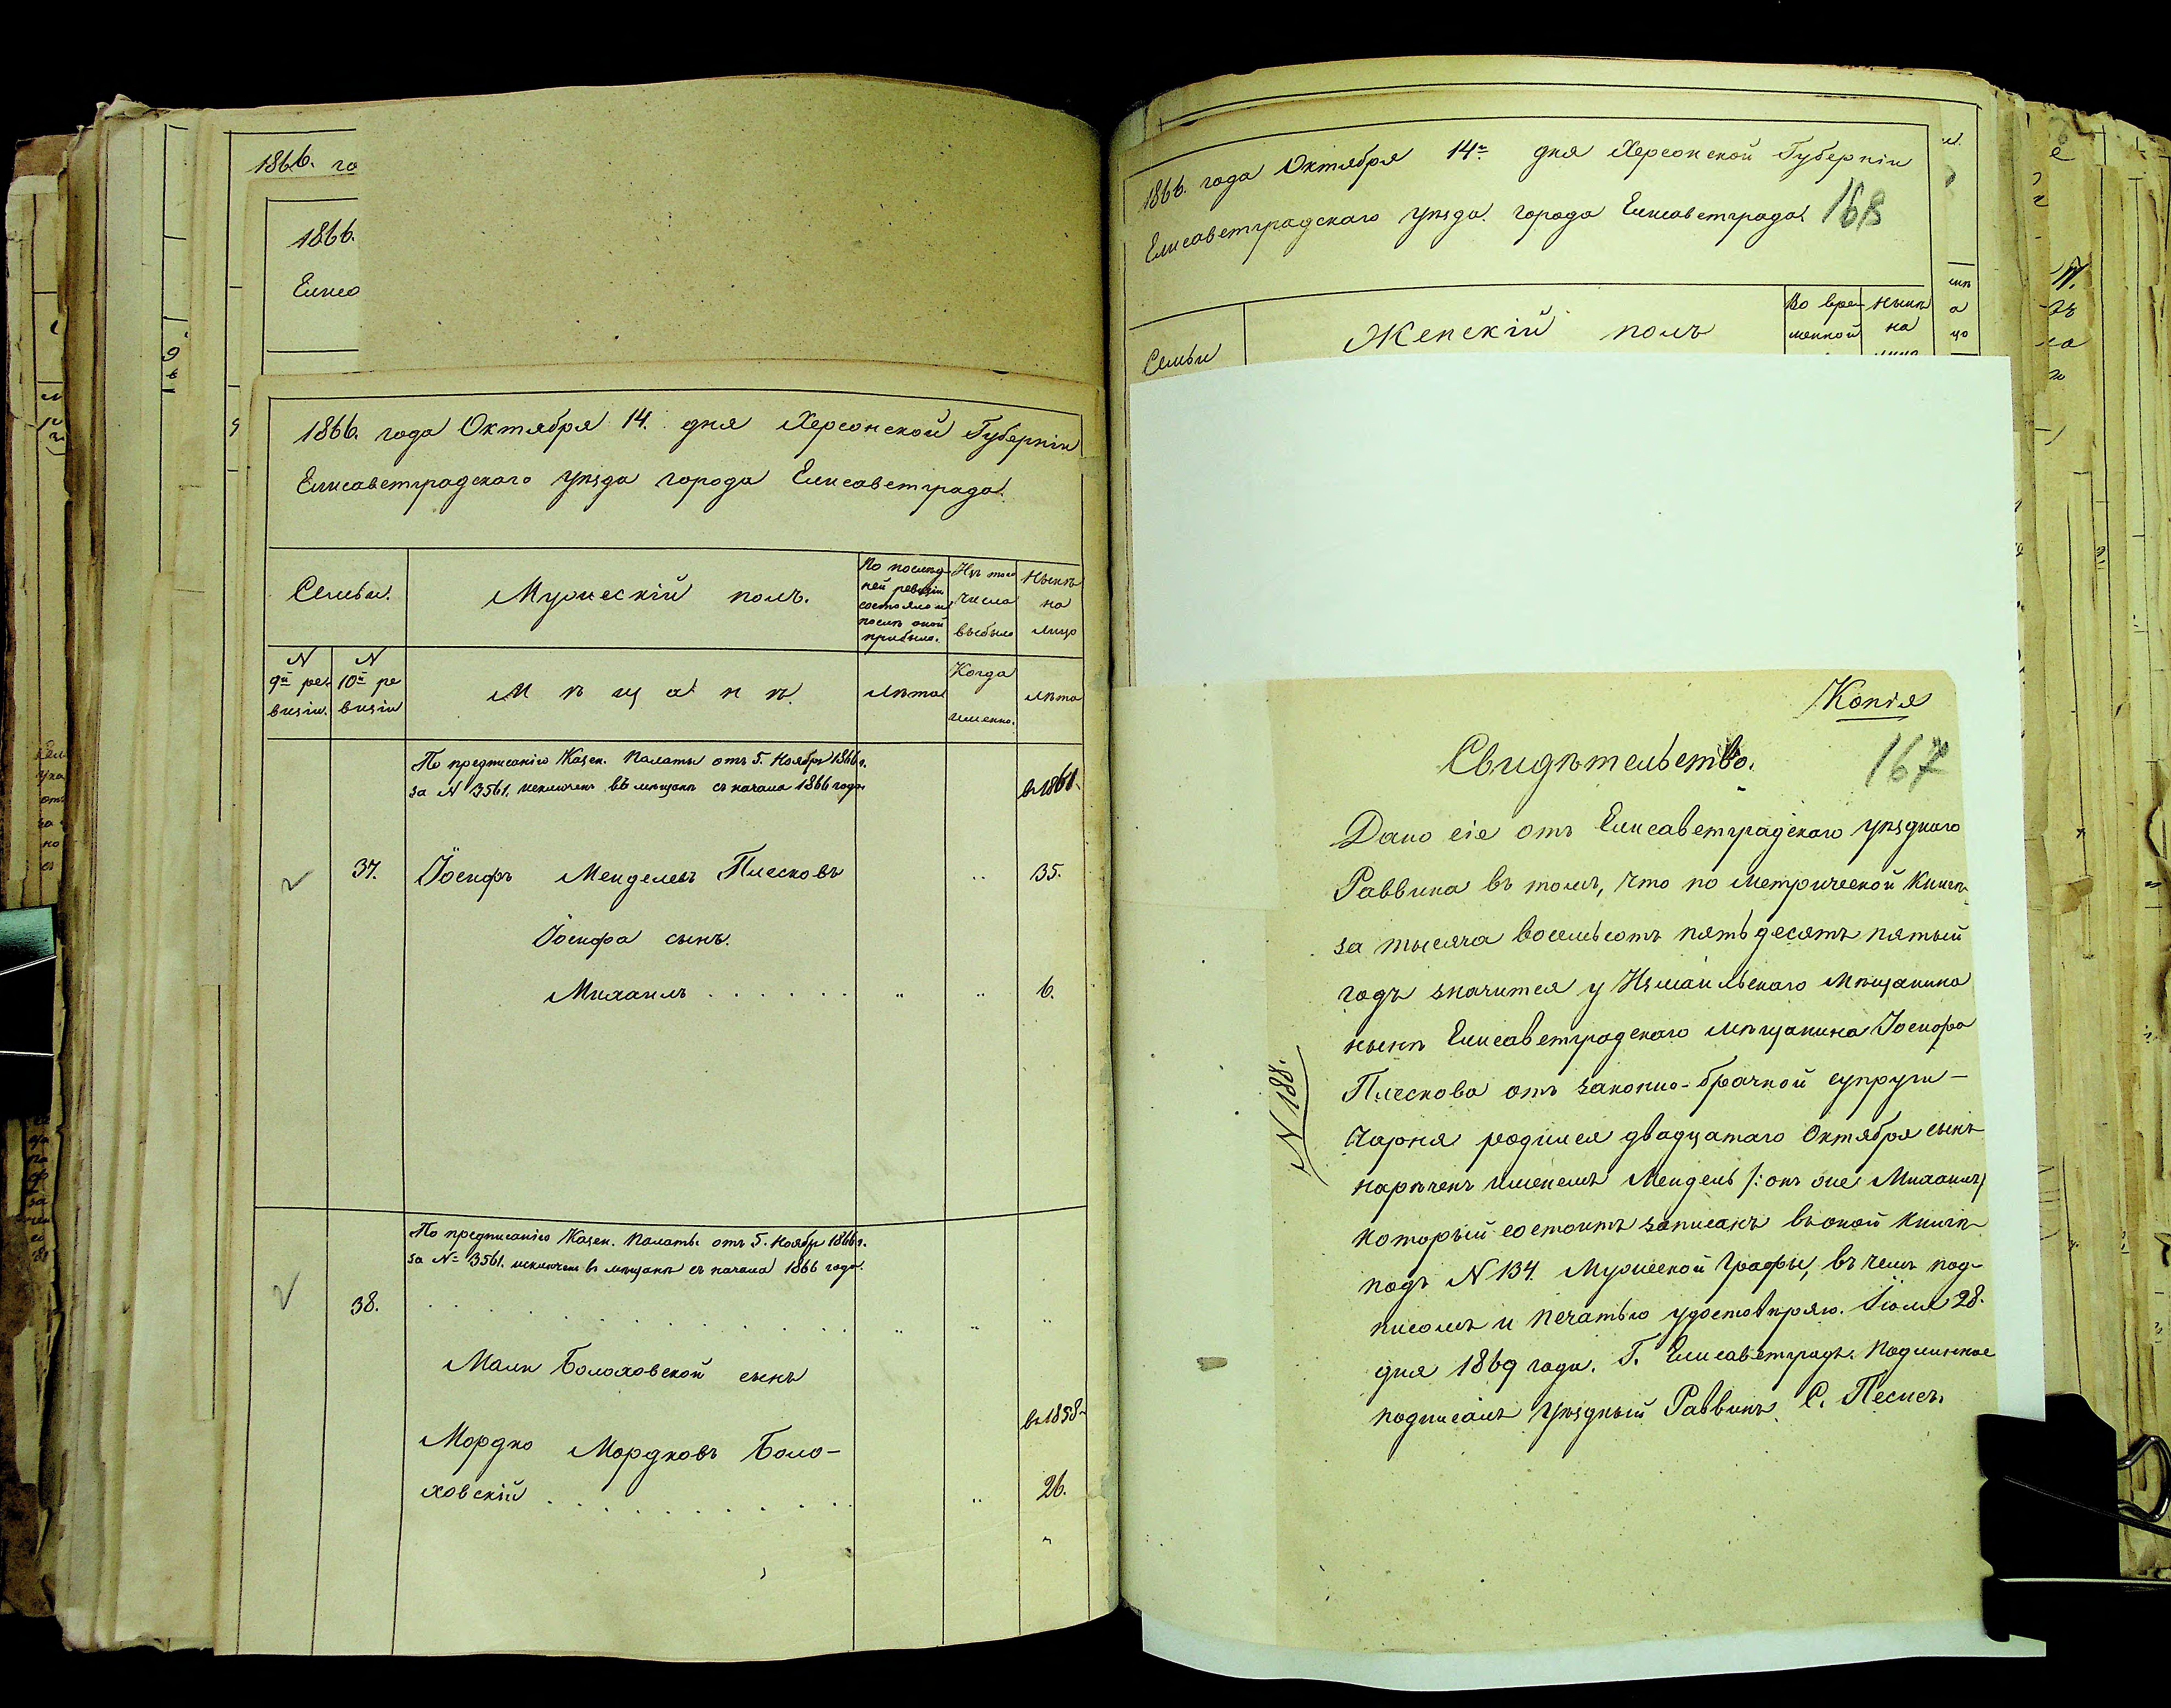 1866. го
1866.
Елисо
1866. года Октября 14. дня Херсонской Губерніи
Елисаветградскаго уѣзда города Елисаветграда.
Семьи.
Мужескій полъ.
По послѣд-
ней ревизіи
состояло и
послѣ оной
прибыло.
Изъ того
числа
выбыло
Нынѣ
на
лицо
N
9й ре-
визіи.
N
10й ре
визіи
Мѣщанъ.
Лѣта
Когда
именно.
Лѣта
По предписанію Казен. Палаты отъ 5. Ноября 1866 г.
за N 3561. въ мѣщане съ начала 1866 года
въ 1861.
37. Іосифъ Менделевъ Плесковъ 35.
Іосифа сынъ.
Михаилъ 6.
По предписанію Казен. Палаты отъ 5. Ноябр 1866 г.
за № 3561. въ мѣщане съ начала 1866 года.
38.
Малки Болоховской сынъ
въ 1858
Мордко Мордковъ Боло-
ховскій 26.
1866. года Октября 14го дня Херсонской Губерніи
Елисаветградскаго уѣзда города Елисаветграда.
168
Семьи
Женскій полъ
Во вре-
менной
Нынѣ
на
Копія
Свидѣтельство.
167
N 188.
Дано сіе отъ Елисаветградскаго уѣзднаго
Раввина въ томъ, что по метрической книгѣ
за тысяча восемьсотъ пятьдесятъ пятый
годъ значится у Измаильскаго Мѣщанина
нынѣ Елисаветградскаго мѣщанина Іосифа
Плескова отъ законно-брачной супруги -
Чарня родился двадцатаго Октября сынъ
нареченъ именемъ Мендель /: онъ же Михаилъ/
который состоитъ записанъ въ оной книгѣ
подъ N 134. Мужеской графы, въ чемъ под-
писомъ и печатью удостовѣряю. Іюля 28.
дня 1869 года. Г. Елисаветградъ. Подлинное
подписалъ Уѣздный Раввинъ С. Песисъ.